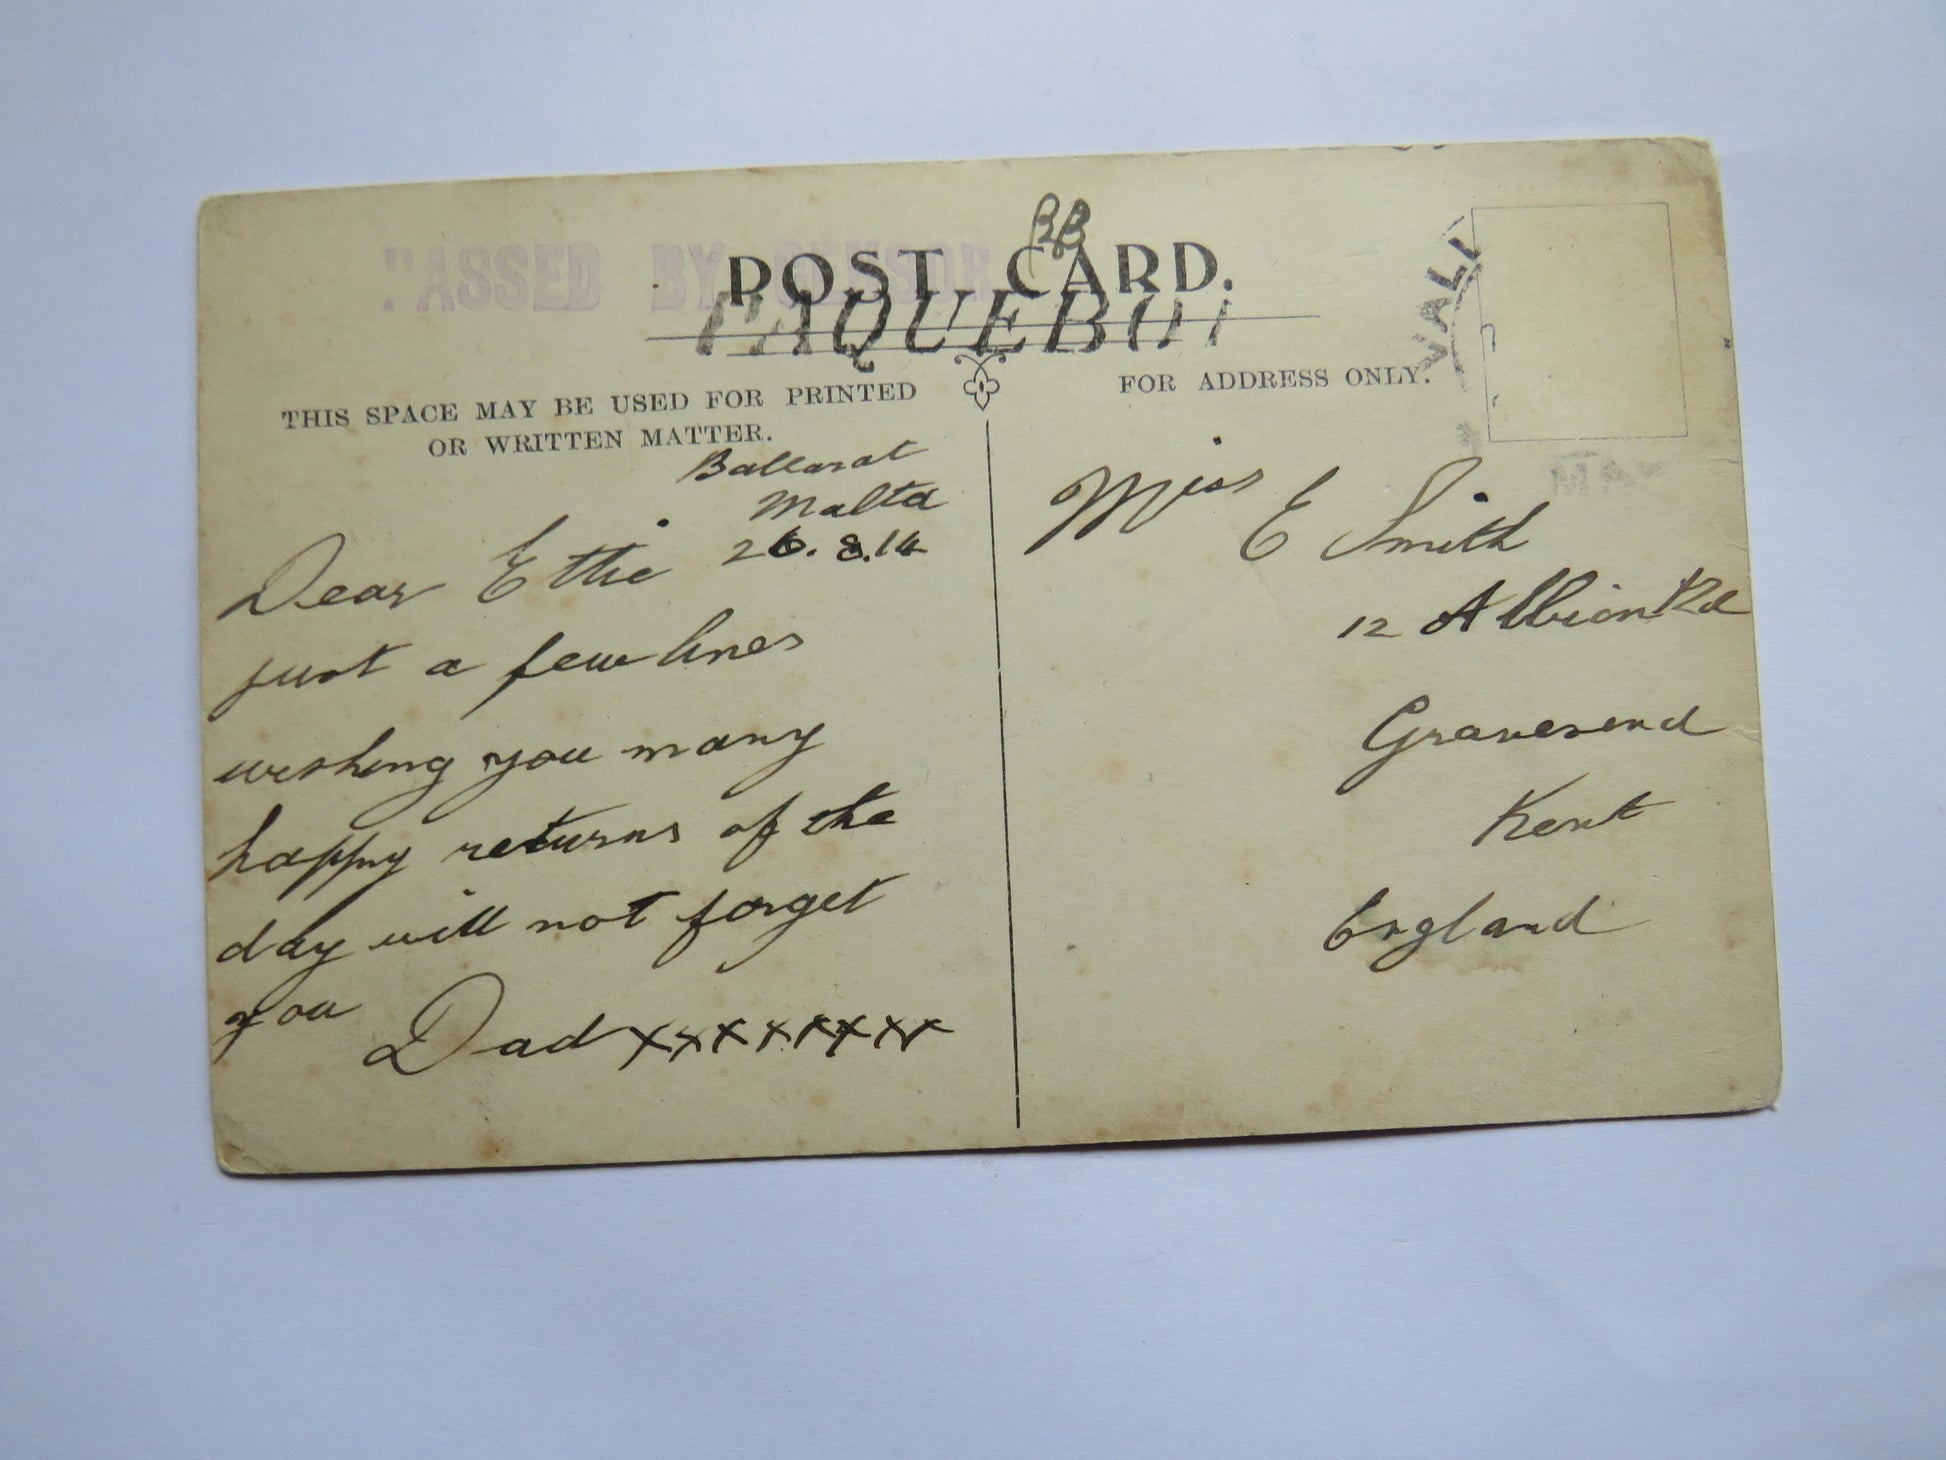 PASSED BY CENSOR
BB
POST CARD.
PAQUEBOT
VALL
THIS SPACE MAY BE USED FOR PRINTED
OR WRITTEN MATTER.
FOR ADDRESS ONLY.
Ballarat
Malta
26.8.14
Dear Ettie
just a few lines
wishing you many
happy returns of the
day will not forget
you
Dad xxxxxxxx
Miss E Smith
12 Albion Rd
Gravesend
Kent
England